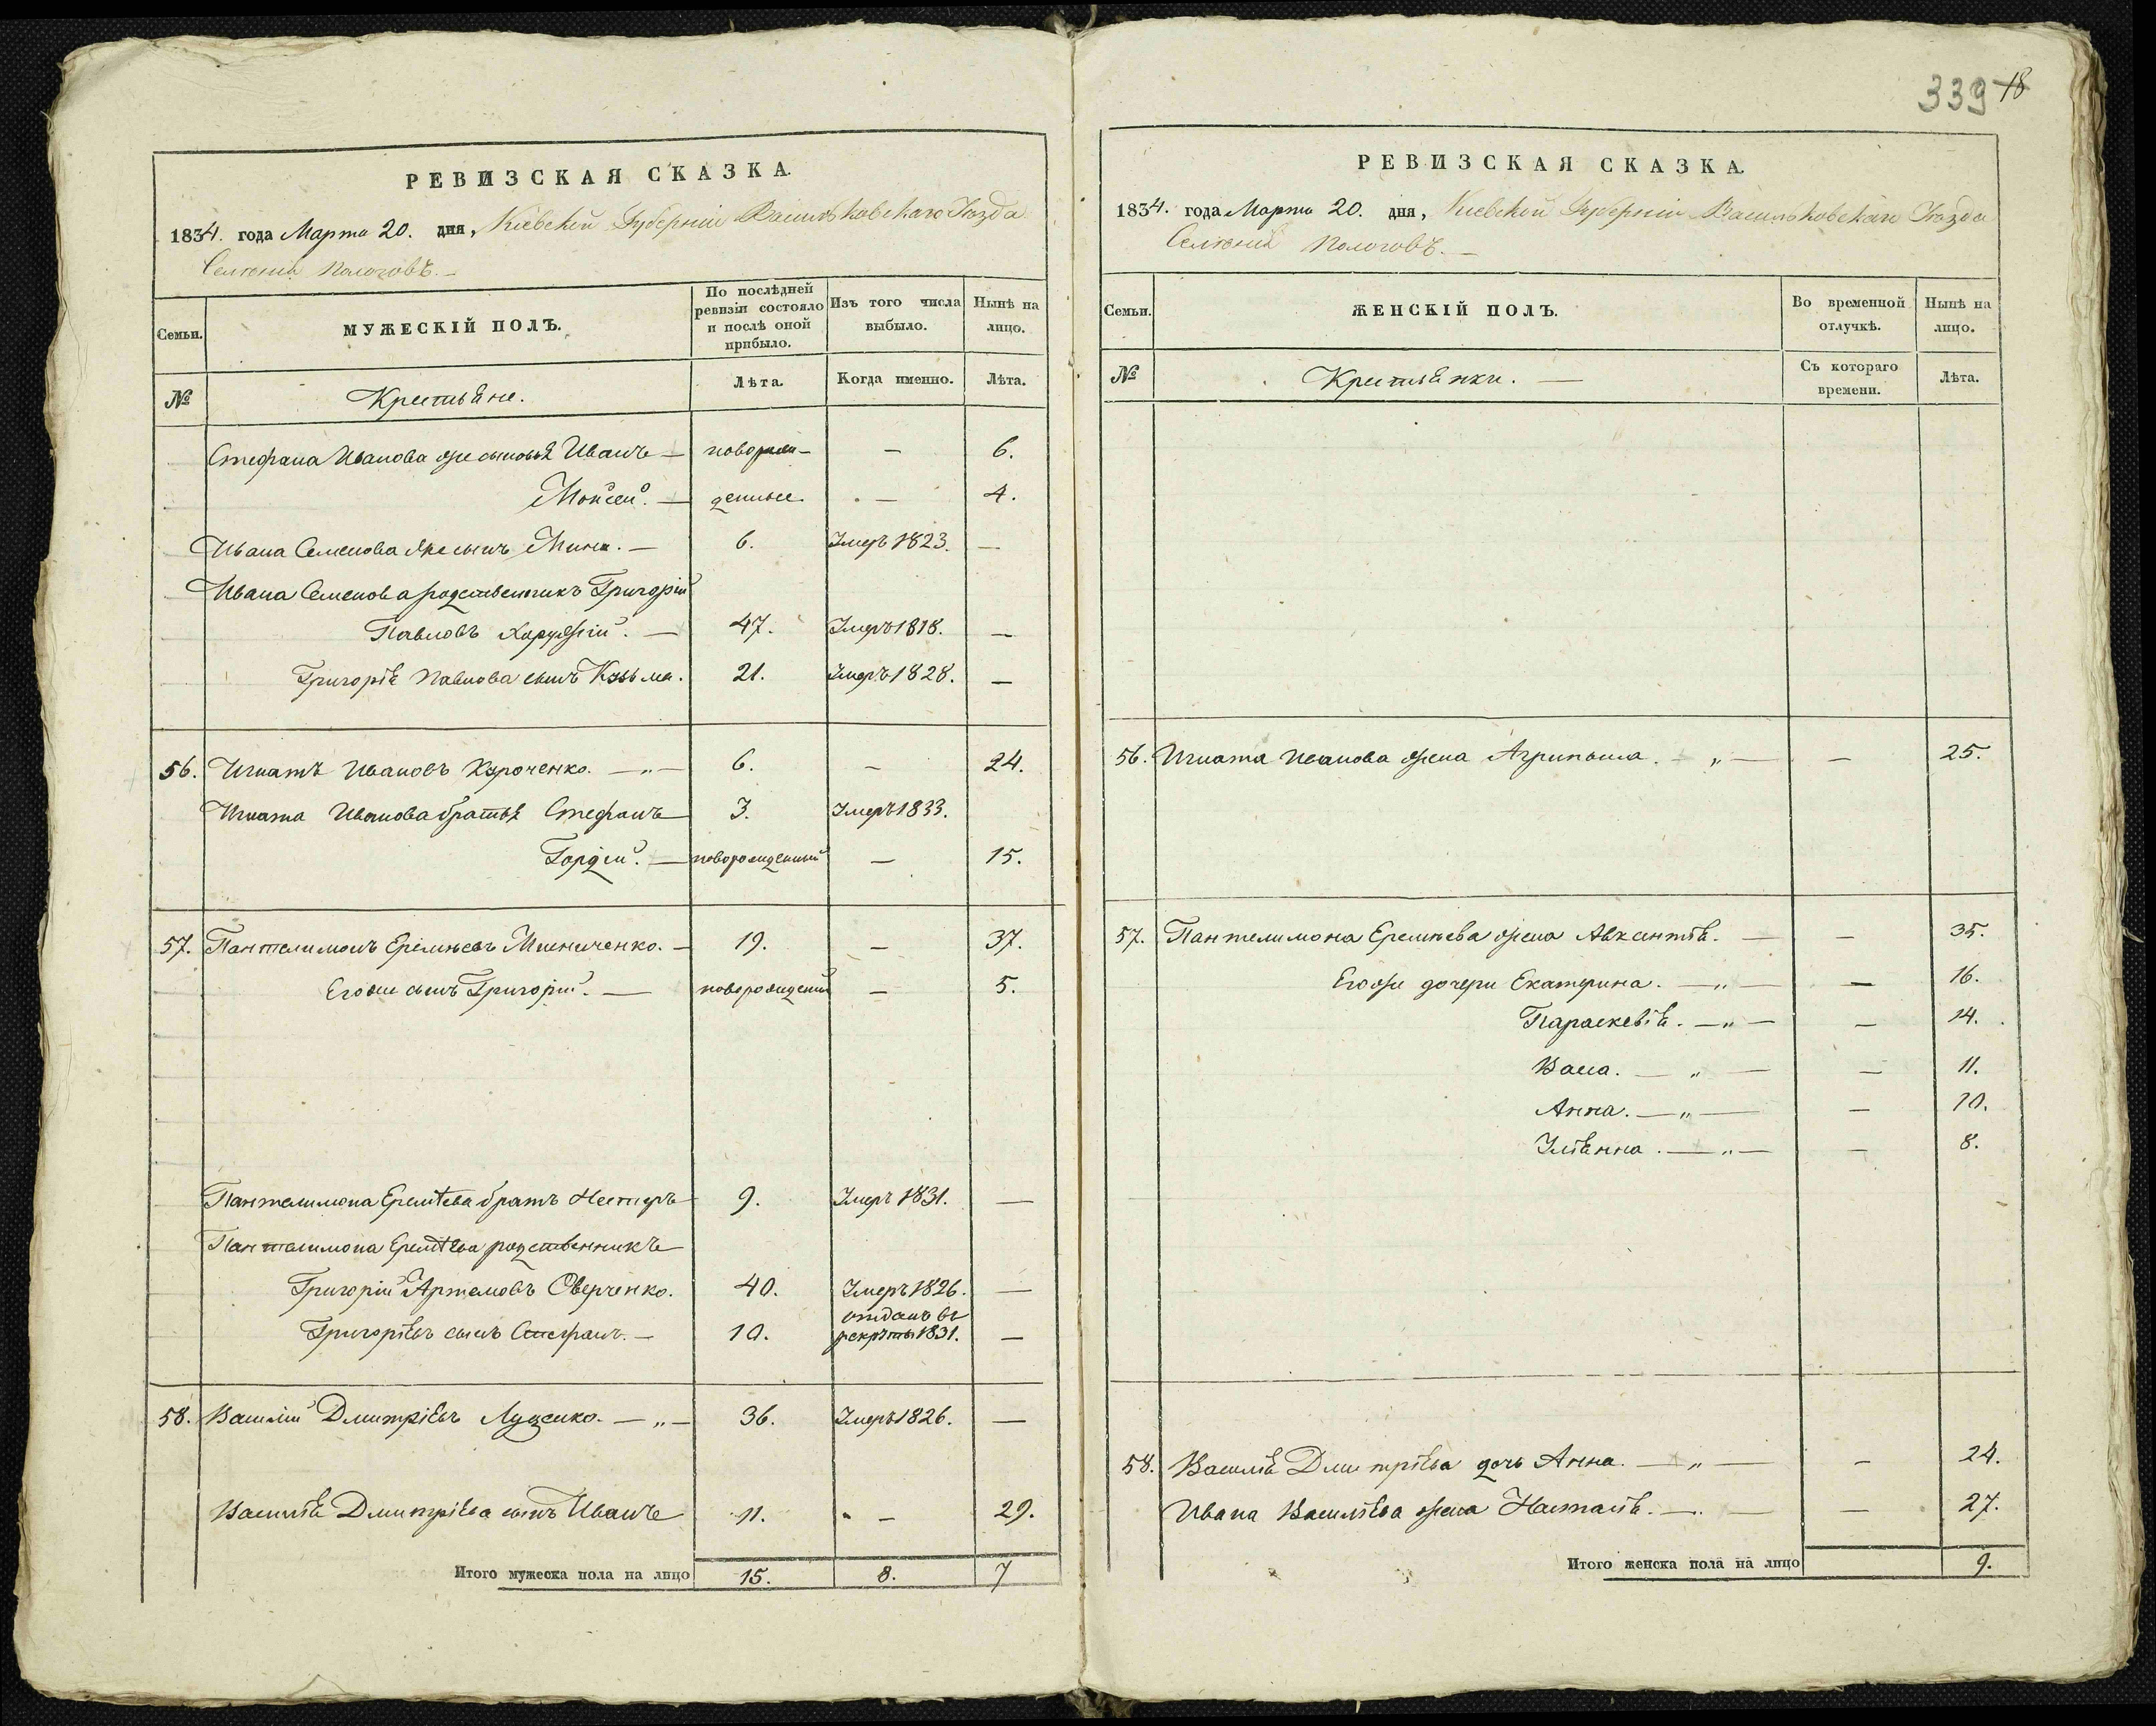 339 18
РЕВИЗСКАЯ СКАЗКА.
1834. года Марта 20. дня, Кіевской Губерніи Васильковскаго Уѣзда
Селенія Пологовъ. —
Семьи. МУЖЕСКІЙ ПОЛЪ. По послѣдней ревизіи состояло и послѣ оной прибыло. Изъ того числа выбыло. Нынѣ на лицо.
№ Крестьяне. Лѣта. Когда именно. Лѣта.
Стефана Иванова же сыновья Иванъ — новорож- — 6.
Мойсей. — денные — 4.
Ивана Семенова же сынъ Мина. — 6. Умеръ 1823. —
Ивана Семенова родственникъ Григорій
Павловъ Харужій. — 47. Умеръ 1818. —
Григорія Павлова сынъ Козьма. 21. Умеръ 1828. —
56. Игнатъ Ивановъ Куроченко. — „ — 6. — 24.
Игната Иванова братья Стефанъ — 3. Умеръ 1833.
Гордій. — новорожденный — 15.
57. Пантелимонъ Еремѣевъ Пшениченко. — 19. — 37.
Его же сынъ Григорій. — новорожденый — 5.
Пантелимона Еремѣева братъ Нестеръ 9. Умеръ 1831. —
Пантелимона Еремѣева родственникъ
Григорій Артемовъ Оверченко. 40. Умеръ 1826. —
Григоріевъ сынъ Стефанъ. — 10. отданъ въ рекруты 1831. —
58. Василій Дмитріевъ Луценко. — „ — 36. Умеръ 1826. —
Василія Дмитріева сынъ Иванъ 11. — 29.
Итого мужеска пола на лицо 15. 8. 7
РЕВИЗСКАЯ СКАЗКА.
1834. года Марта 20. дня, Кіевской Губерніи Васильковскаго Уѣзда
Селенія Пологовъ. —
Семьи. ЖЕНСКІЙ ПОЛЪ. Во временной отлучкѣ. Нынѣ на лицо.
№ Крестьянки. — Съ котораго времени. Лѣта.
56. Игната Иванова жена Агрипына. — „ — — 25.
57. Пантелимона Еремѣева жена Авксентія. — — 35.
Его же дочери Екатерина. — „ — — 16.
Параскевія. — „ — — 14.
Васса. — „ — — 11.
Анна. — „ — — 10.
Уліянна. — „ — — 8.
58. Василія Дмитріева дочь Анна. — „ — — 24.
Ивана Василіева жена Наталія. — — 27.
Итого женска пола на лицо 9.